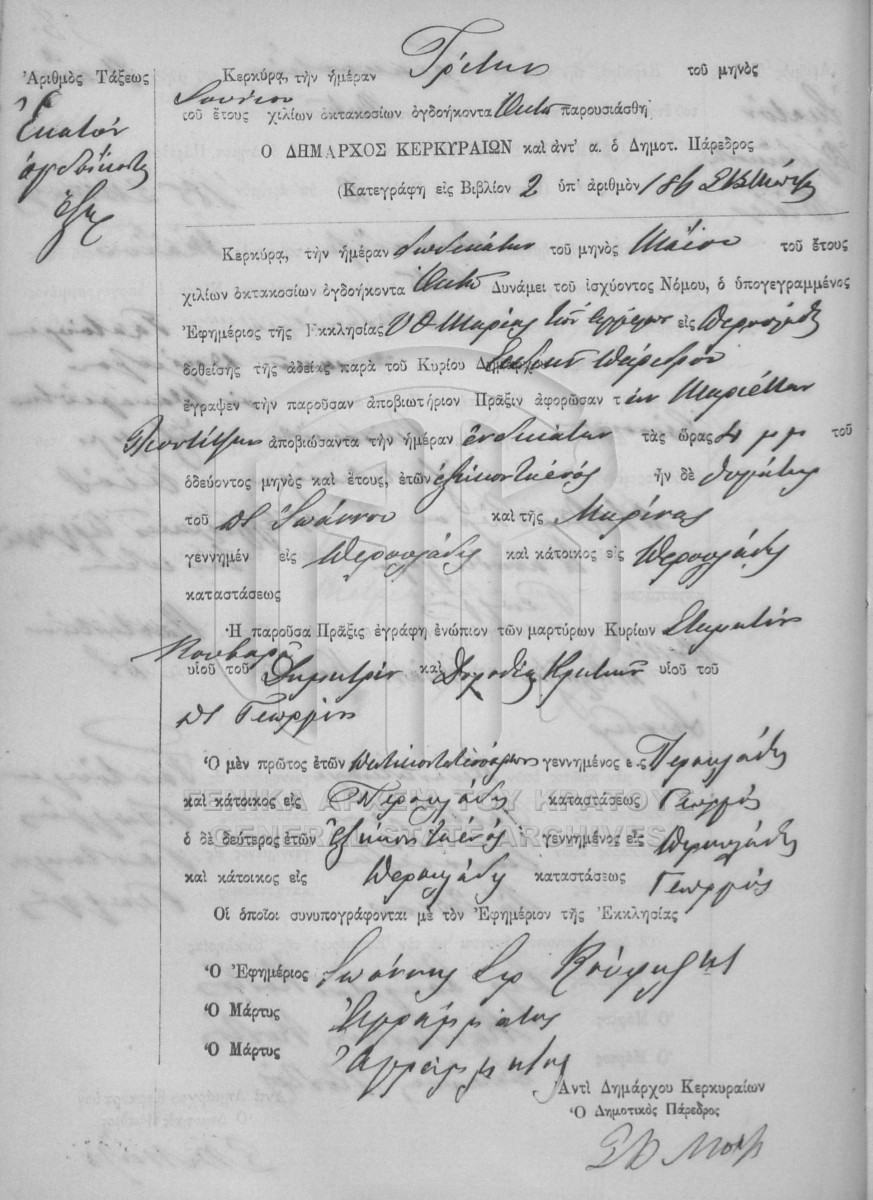 Ἀριθμὸς Τάξεως
Ἑκατὸν
ὀγδοήκοντα
ἕξ
Κερκύρᾳ, τὴν ἡμέραν Τρίτην τοῦ μηνὸς
Ἰουνίου
τοῦ ἔτους χιλίων ὀκτακοσίων ὀγδοήκοντα Ὀκτὼ παρουσιάσθη
Ὁ ΔΗΜΑΡΧΟΣ ΚΕΡΚΥΡΑΙΩΝ καὶ ἀντ' α. ὁ Δημοτ. Πάρεδρος
(Κατεγράφη εἰς Βιβλίον 2 ὑπ' ἀριθμὸν 186
Κερκύρᾳ, τὴν ἡμέραν δωδεκάτην τοῦ μηνὸς Μαΐου τοῦ ἔτους
χιλίων ὀκτακοσίων ὀγδοήκοντα Ὀκτὼ Δυνάμει τοῦ ἰσχύοντος Νόμου, ὁ ὑπογεγραμμένος
Ἐφημέριος τῆς Ἐκκλησίας Υ Θ Μαρίας τῶν εἰς Περουλάδες
δοθείσης τῆς ἀδείας παρὰ τοῦ Κυρίου Δημάρχου Πάρεδρου
ἔγραψεν τὴν παροῦσαν ἀποβιωτήριον Πρᾶξιν ἀφορῶσαν τ ὴν Μαριέτταν
ἀποβιώσαντα τὴν ἡμέραν ἑνδεκάτην τὰς ὥρας 4 μ μ τοῦ
ὁδεύοντος μηνὸς καὶ ἔτους, ἐτῶν ἑξήκοντα ἑνός ἦν δὲ θυγάτηρ
τοῦ Ἰωάννου καὶ τῆς Μαρίνας
γεννημέν εἰς Περουλάδες καὶ κάτοικος εἰς Περουλάδες
καταστάσεως
Ἡ παροῦσα Πρᾶξις ἐγράφη ἐνώπιον τῶν μαρτύρων Κυρίων Σταμάτιον
Κουβαρᾶ
υἱοῦ τοῦ Δημητρίου καὶ υἱοῦ τοῦ
Γεωργίου
Ὁ μὲν πρῶτος ἐτῶν πεντήκοντα τεσσάρων γεννημένος ε ς Περουλάδες
καὶ κάτοικος εἰς Περουλάδες καταστάσεως Γεωργός
ὁ δὲ δεύτερος ἐτῶν Ἑξήκοντα ἑνός γεννημένος εἰς Περουλάδες
καὶ κάτοικος εἰς Περουλάδες καταστάσεως Γεωργός
ΓΕΝΙΚΑ ΑΡΧΕΙΑ ΤΟΥ ΚΡΑΤΟΥΣ
GENERAL STATE ARCHIVES
Οἱ ὁποῖοι συνυπογράφονται μὲ τὸν Ἐφημέριον τῆς Ἐκκλησίας
Ὁ Ἐφημέριος Ἰωάννης
Ὁ Μάρτυς Ἀγράμματος
Ὁ Μάρτυς Ἀγράμματος
Ἀντὶ Δημάρχου Κερκυραίων
Ὁ Δημοτικὸς Πάρεδρος